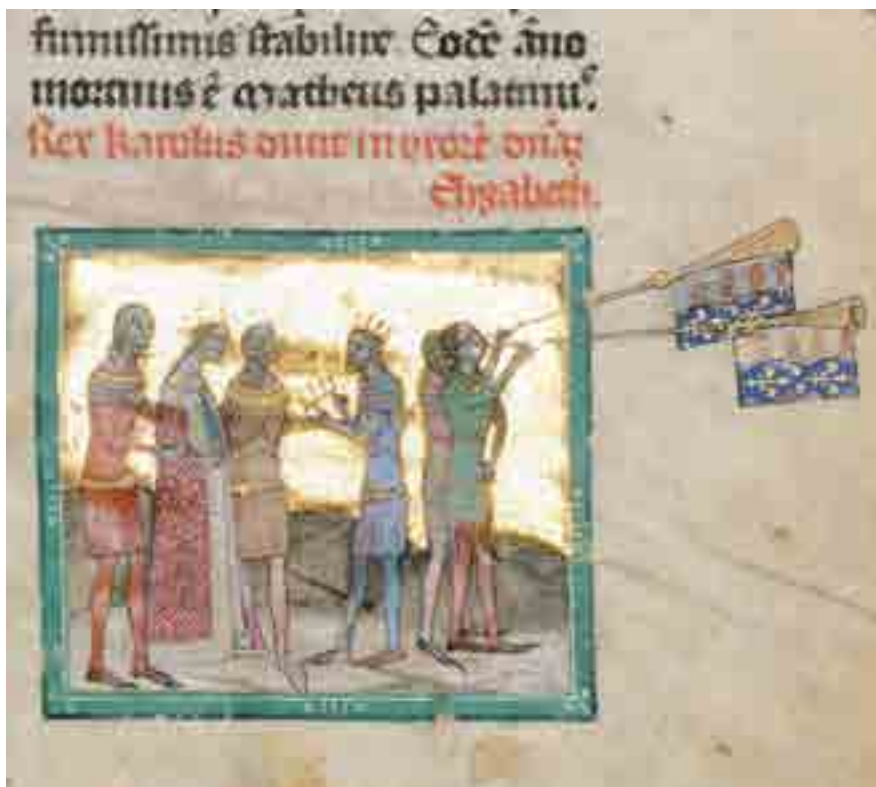 firmissimis stabiliuit. Eodē āno
mortuus ē Matheus palatinuˢ.
Rex Karolus ducit in vxorē dn̄aʒ
Elyzabeth.